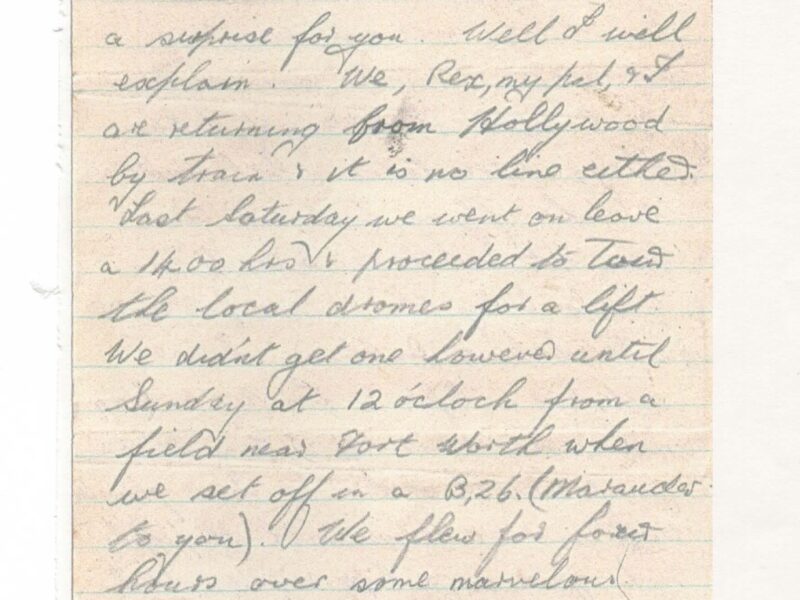 a surprise for you. Well I will
explain. We, Rex, my pal, & I
are returning from Hollywood
by train & it is no line either.
Last Saturday we went on leave
a 1400 hrs & proceeded to Tour
the local dromes for a lift.
We didn't get one however until
Sunday at 12 o'cloch from a
field near Fort Worth when
we set off in a B,26. (Marauder
to you). We flew for four
hours over some marvelous